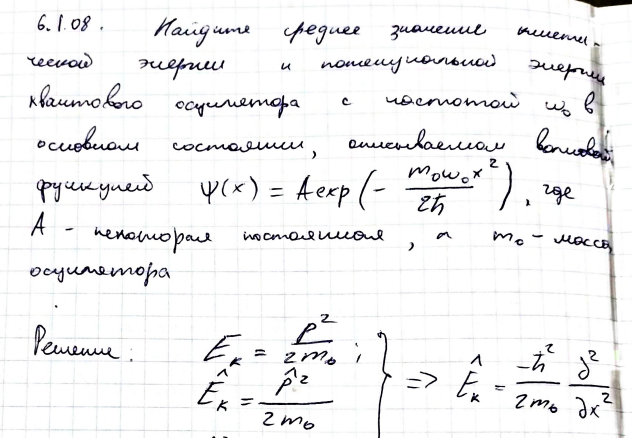 6.1.08. Найдите среднее значение кинети-
ческой энергии и потенциальной энергии
квантового осциллятора с частотой ω₀ в
основном состоянии, описываемом волновой
функцией Ψ(x) = A exp(- m₀ω₀x² / 2ħ), где
A - некоторая постоянная, а m₀ - масса
осциллятора
Решение: E_к = p² / 2m₀ ;
Ê_к = p̂² / 2m₀ } => Ê_к = -ħ² / 2m₀ ∂² / ∂x²